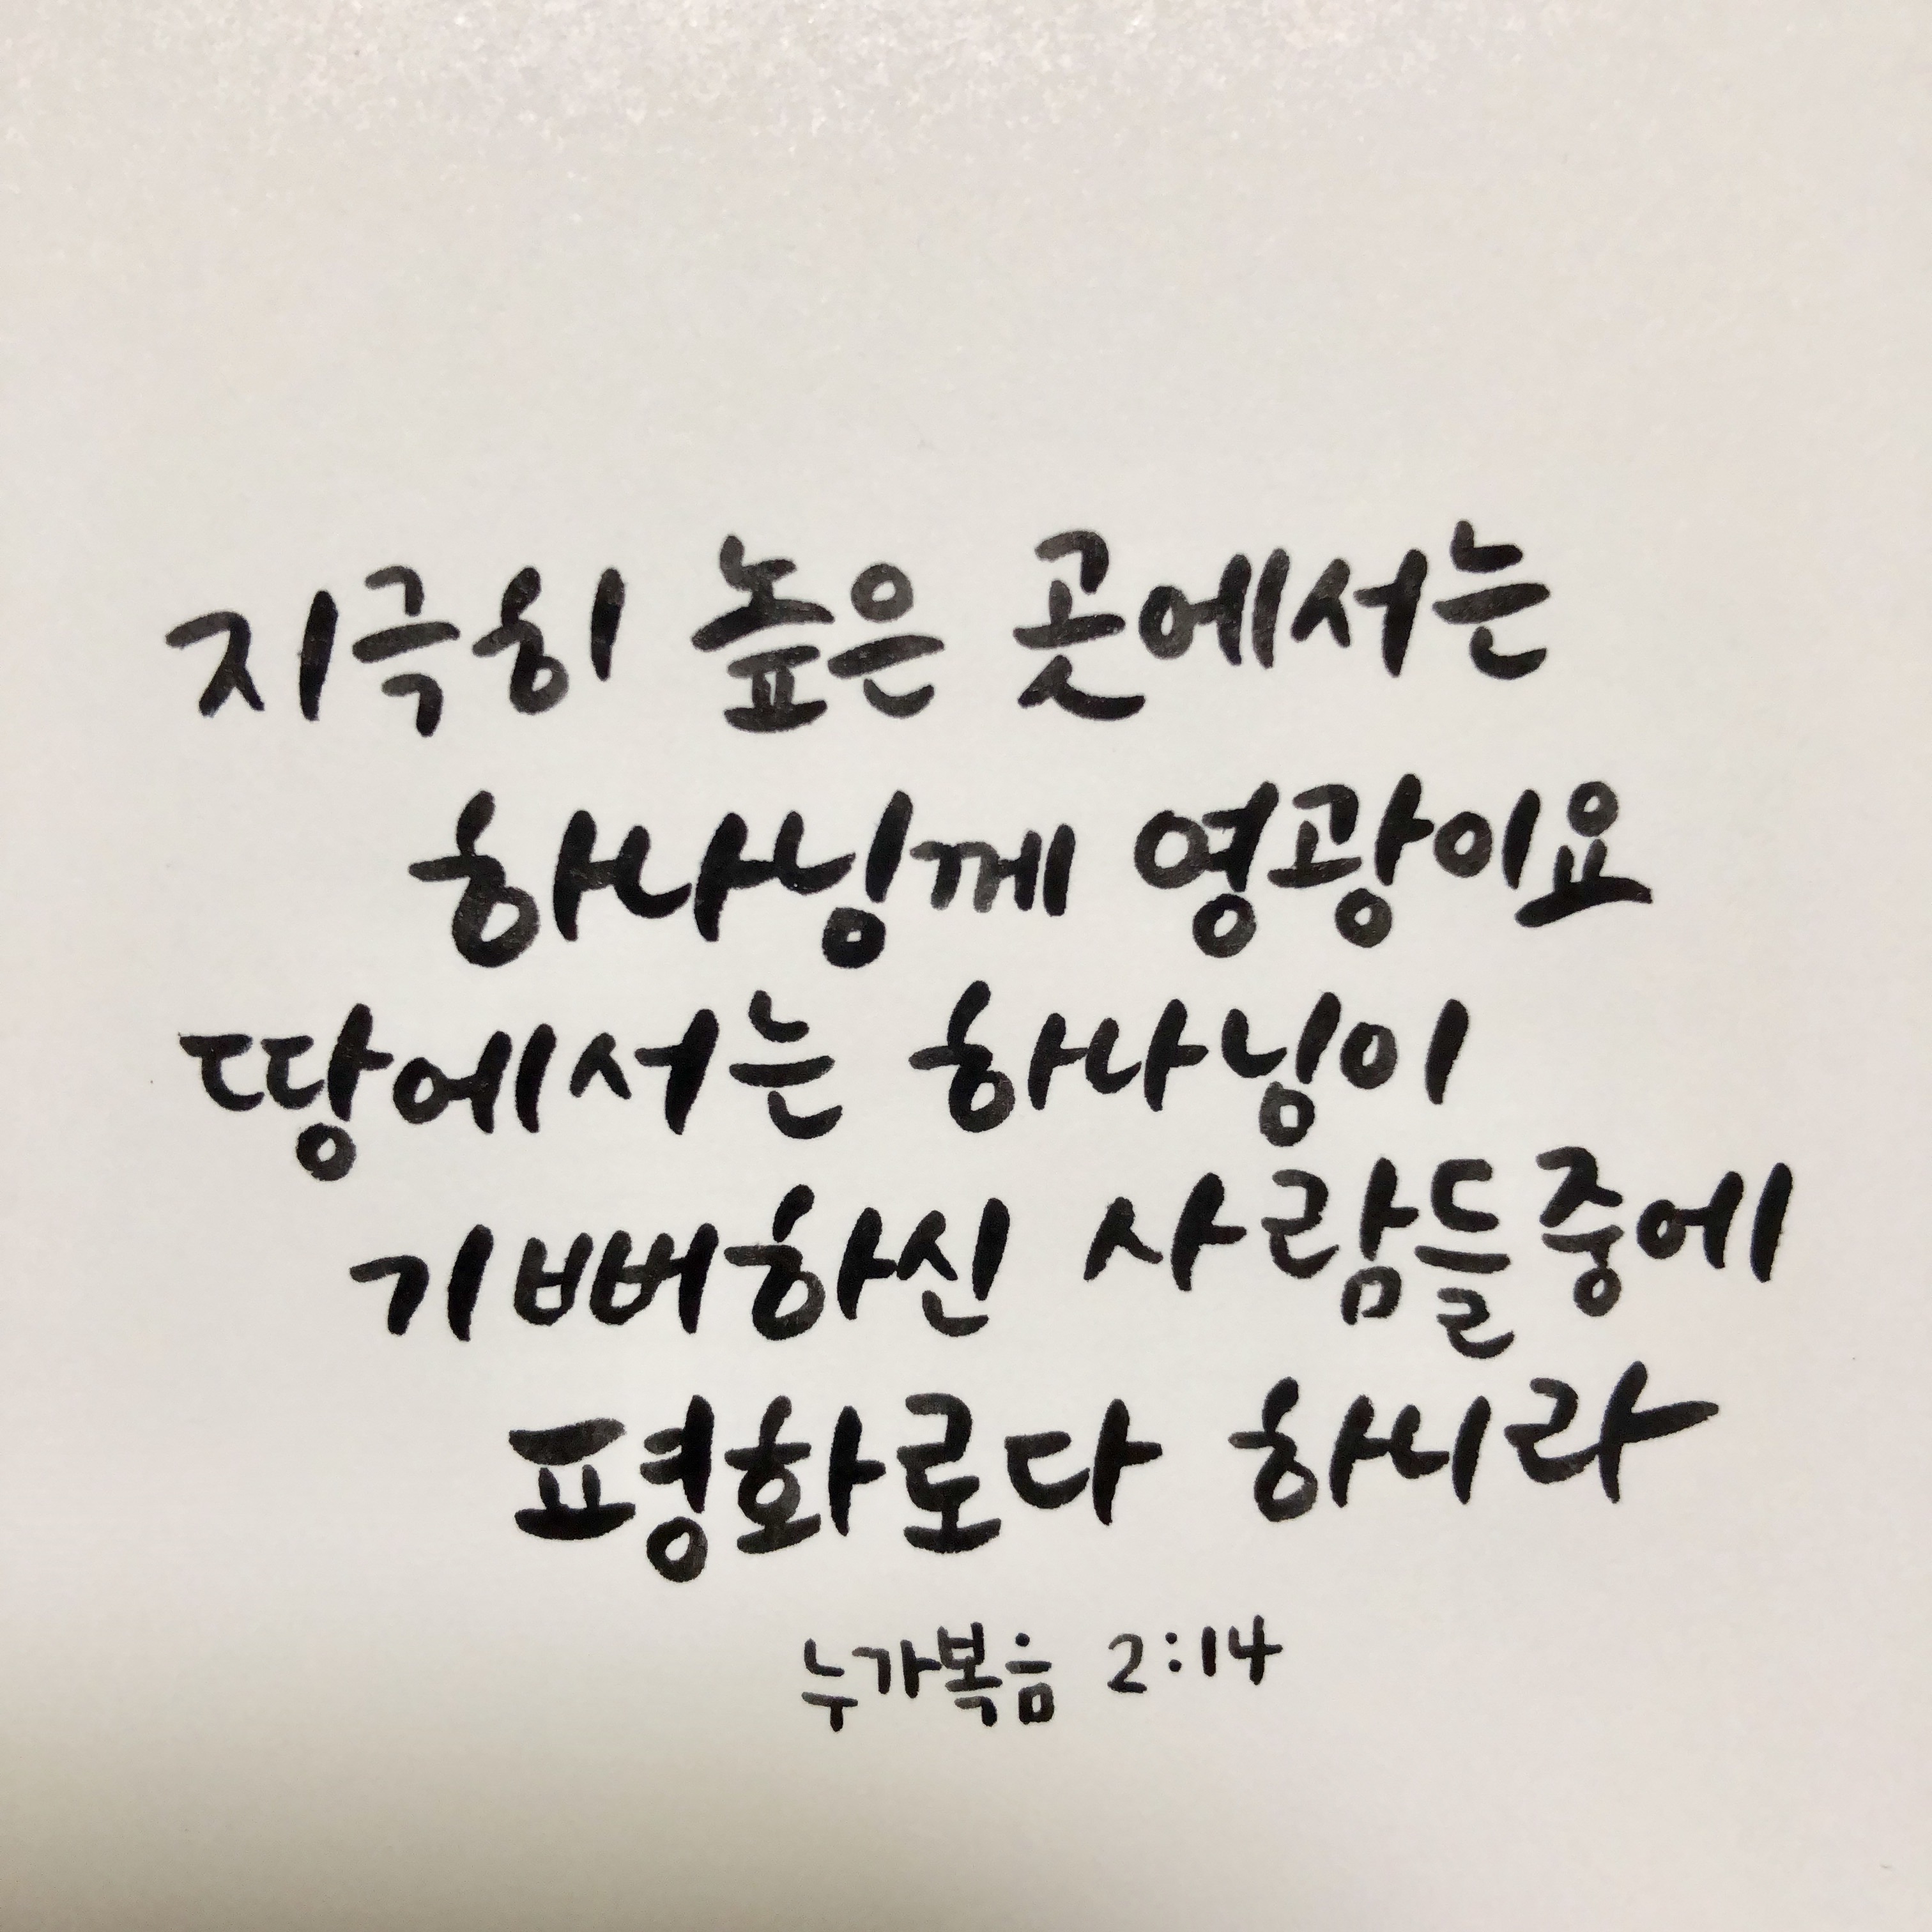 지극히 높은 곳에서는
하나님께 영광이요
땅에서는 하나님이
기뻐하신 사람들중에
평화로다 하니라
누가복음 2:14